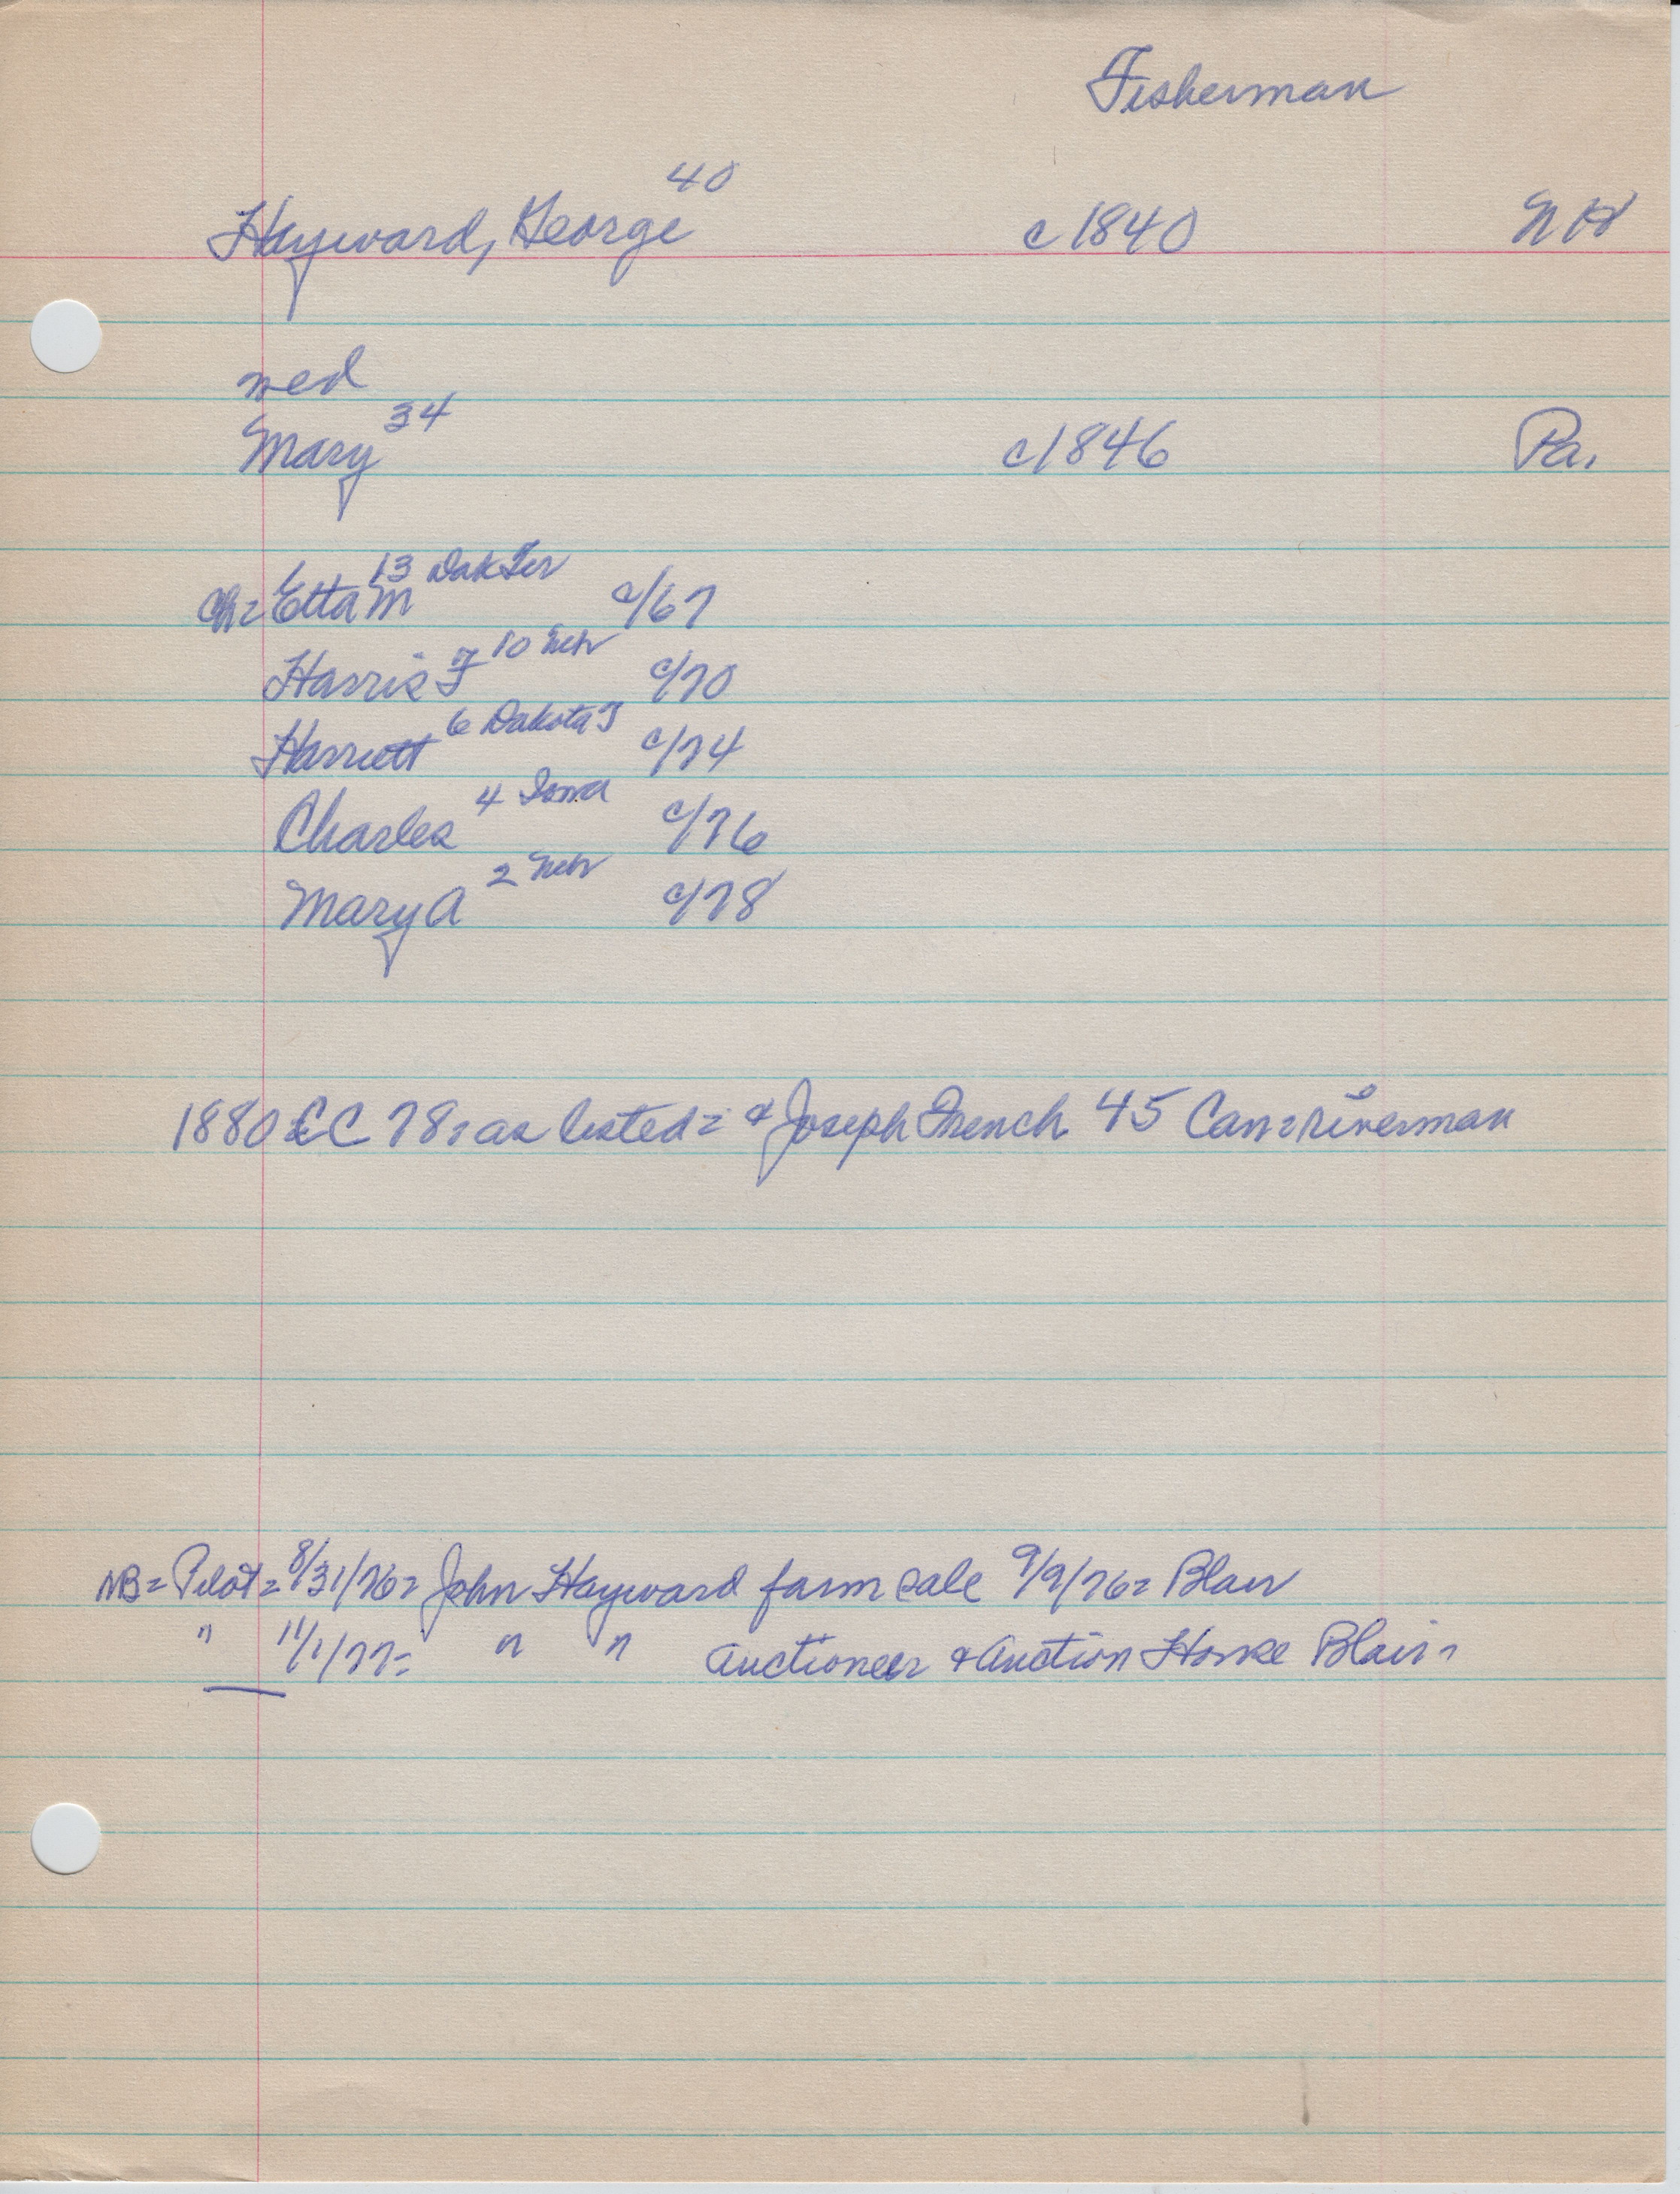 Fisherman
Hayward, George 40 c1840 NH
med
Mary 34 c1846 Pa.
Ch= Etta M 13 Dak Ter c/67
Harris F 10 Nebr c/70
Harriett 6 Dakota T c/74
Charles 4 Iowa c/76
Mary A 2 Nebr c/78
1880 £C 78= as listed= & Joseph French 45 Can=riverman
NB= Pilot= 8/31/76= John Hayward farm sale 9/9/76= Blair
" 11/1/77= " " Auctioneer & Auction House Blair-